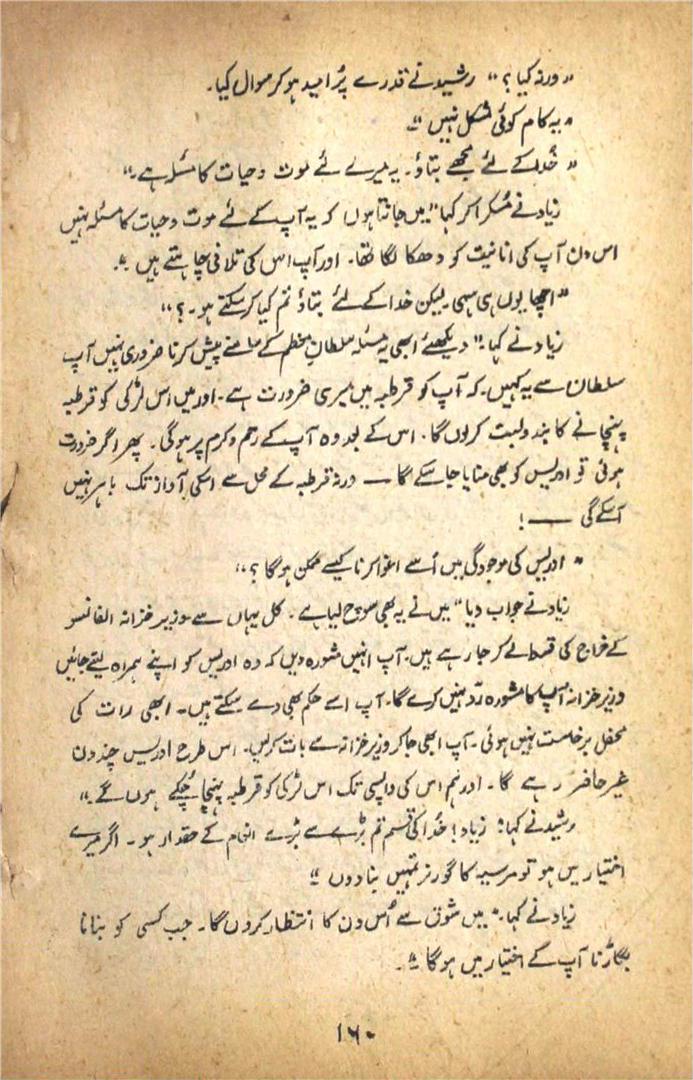 "ورنہ کیا؟" رشید نے قدرے پُر امید ہو کر سوال کیا۔
"یہ کام کوئی مشکل نہیں"
"خُدا کے لئے مجھے بتاؤ۔ یہ میرے لئے موت و حیات کا مسئلہ ہے۔"
زیاد نے مُسکرا کر کہا "میں جانتا ہوں کہ یہ آپ کے لئے موت و حیات کا مسئلہ نہیں
اس دن آپ کی انانیت کو دھکا لگا تھا۔ اور آپ اس کی تلافی چاہتے ہیں۔"
"اچھا یوں ہی سہی لیکن خدا کے لئے بتاؤ تم کیا کر سکتے ہو۔؟"
زیاد نے کہا۔ "دیکھئے ابھی یہ مسئلہ سلطان معظم کے سامنے پیش کرنا ضروری نہیں آپ
سلطان سے یہ کہیں۔ کہ آپ کو قرطبہ میں میری ضرورت ہے۔ اور میں اس لڑکی کو قرطبہ
پہنچانے کا بندوبست کر لوں گا۔ اس کے بعد وہ آپ کے رحم و کرم پر ہوگی۔ پھر اگر ضرورت
ہوئی تو ادریس کو بھی منایا جا سکے گا — ورنہ قرطبہ کے محل سے اسکی آواز تک باہر نہیں
آسکے گی —!
"ادریس کی موجودگی میں اُسے اغوا کرنا کیسے ممکن ہوگا؟"
زیاد نے جواب دیا "میں نے یہ بھی سوچ لیا ہے۔ کل یہاں سے وزیر خزانہ الفانسو
کے خراج کی قسط لے کر جا رہے ہیں۔ آپ انہیں مشورہ دیں کہ وہ ادریس کو اپنے ہمراہ لیتے جائیں
وزیر خزانہ آپ کا مشورہ رد نہیں کرے گا۔ آپ اسے حکم بھی دے سکتے ہیں۔ ابھی رات کی
محفل برخاست نہیں ہوئی۔ آپ ابھی جا کر وزیر خزانہ سے بات کرلیں۔ اس طرح ادریس چند دن
غیر حاضر رہے گا۔ اور ہم اس کی واپسی تک اس لڑکی کو قرطبہ پہنچا چُکے ہوں گے۔"
رشید نے کہا: زیاد! خُدا کی قسم تم بڑے سے بڑے انعام کے حقدار ہو۔ اگر میرے
اختیار میں ہو تو مرسیہ کا گورنر تمہیں بنا دوں"
زیاد نے کہا۔ "میں شوق سے اُس دن کا انتظار کروں گا۔ جب کسی کو بنانا
بگاڑنا آپ کے اختیار میں ہوگا"۔
۱۶۰